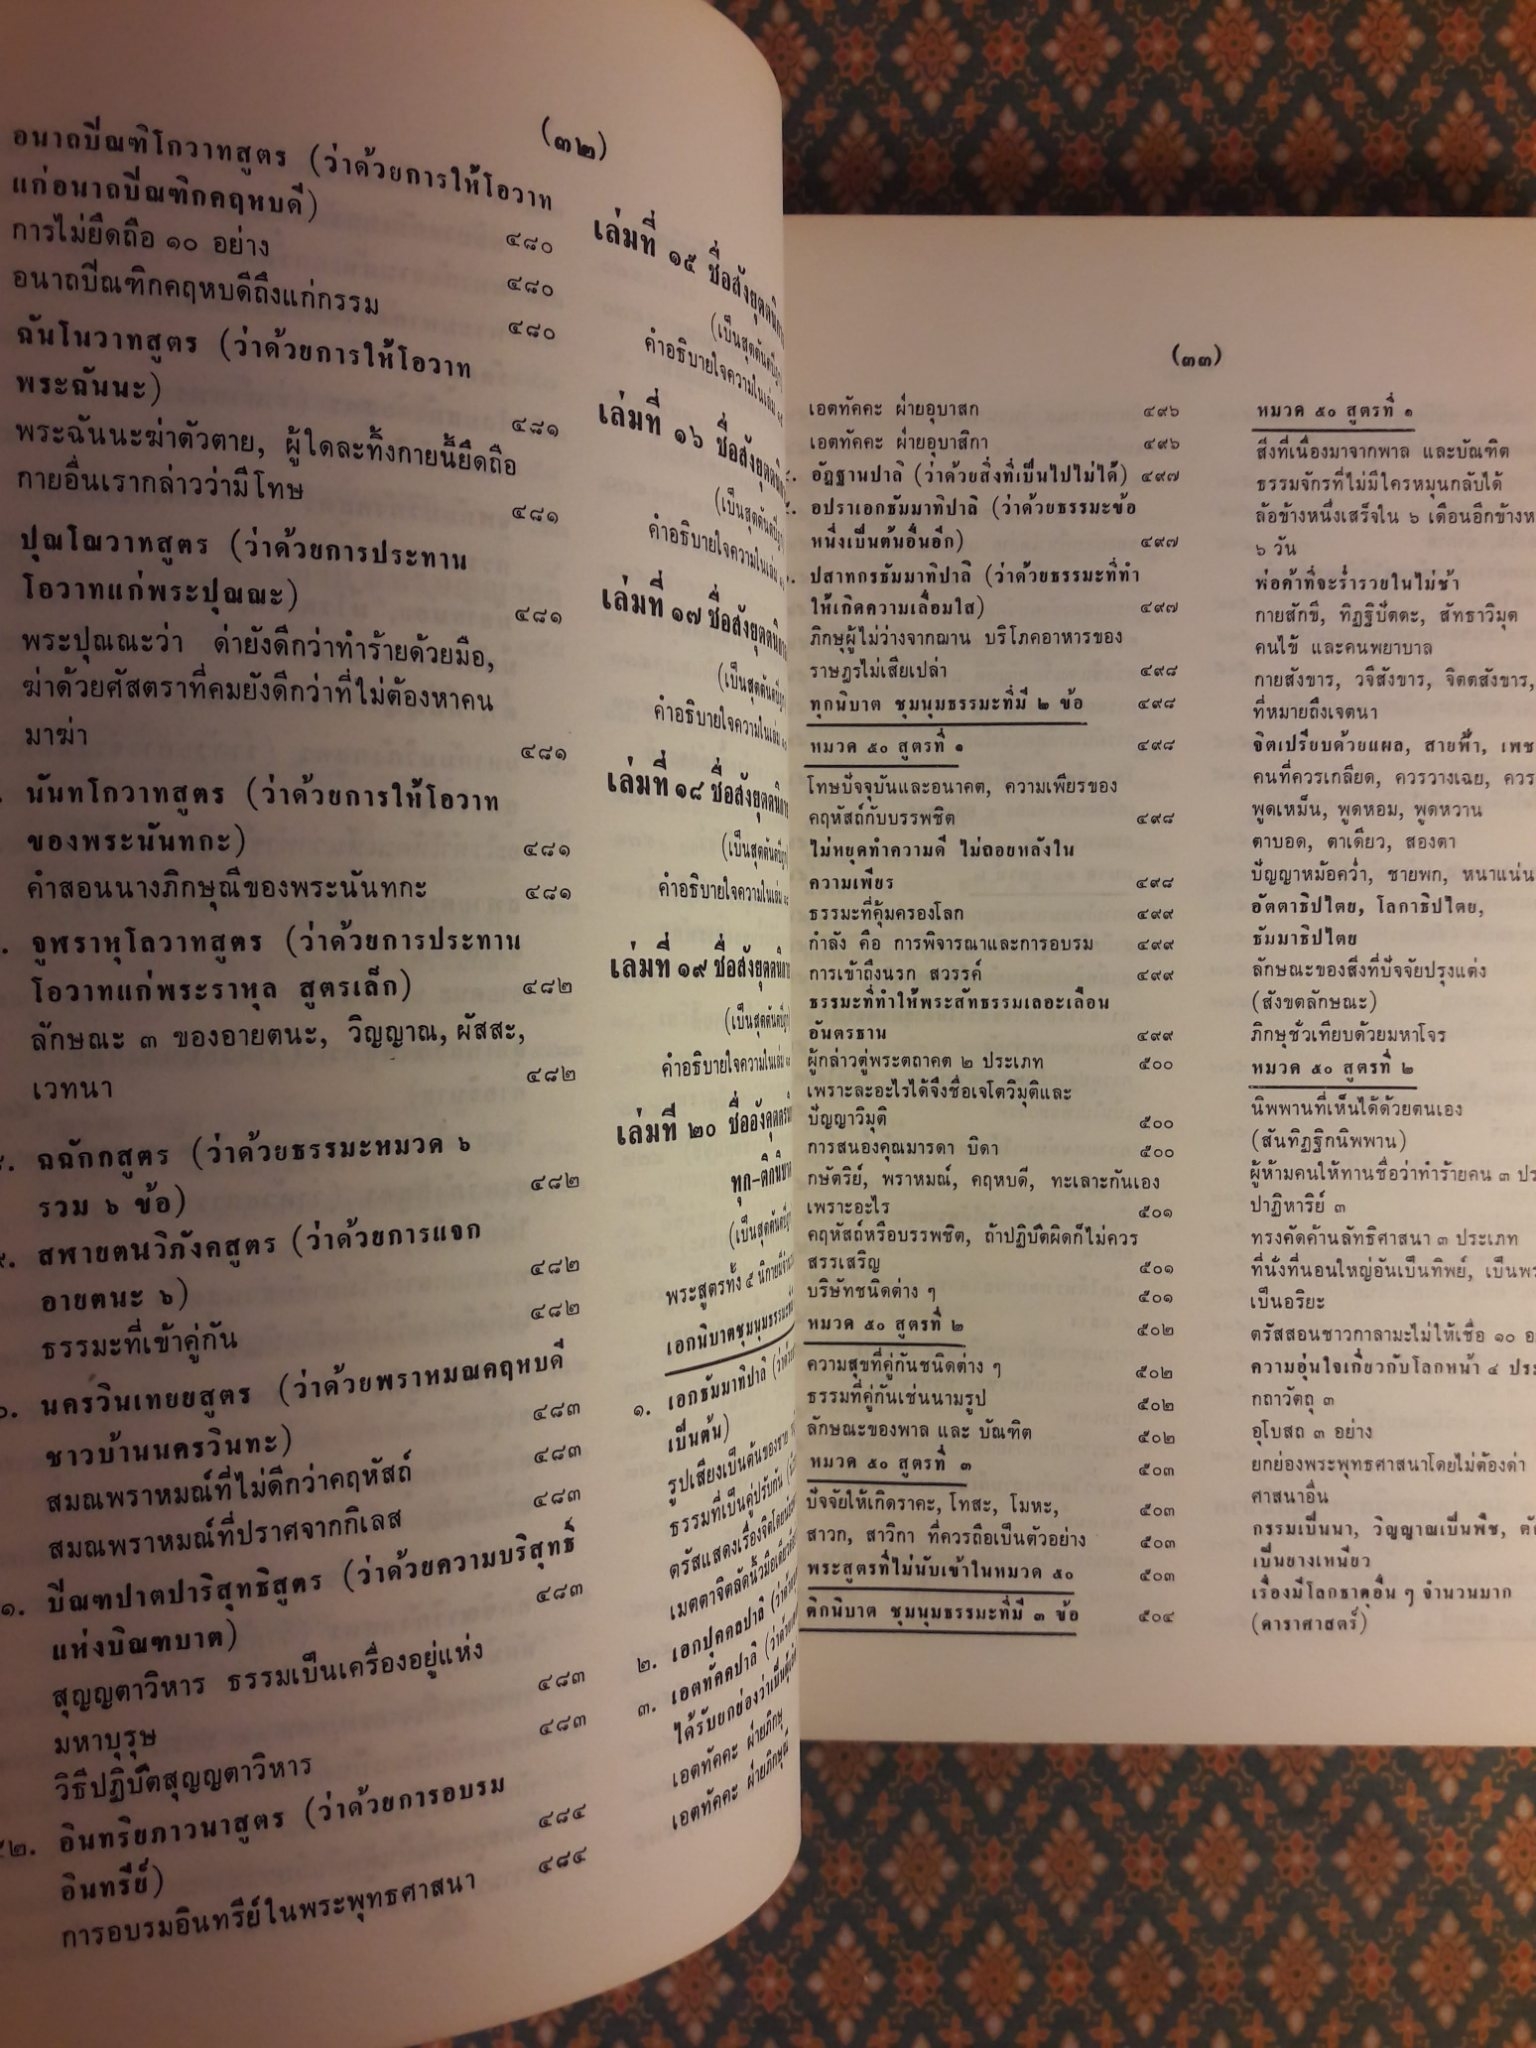 (๓๒)
อนาถบิณฑิโกวาทสูตร (ว่าด้วยการให้โอวาท
แก่อนาถบิณฑิกคฤหบดี) ๔๘๐
การไม่ยึดถือ ๑๐ อย่าง ๔๘๐
อนาถบิณฑิกคฤหบดีถึงแก่กรรม ๔๘๐
ฉันโนวาทสูตร (ว่าด้วยการให้โอวาท
พระฉันนะ) ๔๘๑
พระฉันนะฆ่าตัวตาย, ผู้ใดละทิ้งกายนี้ยึดถือ
กายอื่นเรากล่าวว่ามีโทษ ๔๘๑
ปุณโณวาทสูตร (ว่าด้วยการประทาน
โอวาทแก่พระปุณณะ) ๔๘๑
พระปุณณะว่า ด่ายังดีกว่าทำร้ายด้วยมือ,
ฆ่าด้วยศัสตราที่คมยังดีกว่าที่ไม่ต้องหาคน
มาฆ่า ๔๘๑
นันทโกวาทสูตร (ว่าด้วยการให้โอวาท
ของพระนันทกะ) ๔๘๑
คำสอนนางภิกษุณีของพระนันทกะ ๔๘๑
จูฬราหุโลวาทสูตร (ว่าด้วยการประทาน
โอวาทแก่พระราหุล สูตรเล็ก) ๔๘๒
ลักษณะ ๓ ของอายตนะ, วิญญาณ, ผัสสะ,
เวทนา ๔๘๒
ฉฉักกสูตร (ว่าด้วยธรรมะหมวด ๖
รวม ๖ ข้อ) ๔๘๒
สฬายตนวิภังคสูตร (ว่าด้วยการแจก
อายตนะ ๖) ๔๘๒
ธรรมะที่เข้าคู่กัน ๔๘๒
นครวินเทยยสูตร (ว่าด้วยพราหมณคฤหบดี
ชาวบ้านนครวินทะ) ๔๘๓
สมณพราหมณ์ที่ไม่ดีกว่าคฤหัสถ์ ๔๘๓
สมณพราหมณ์ที่ปราศจากกิเลส ๔๘๓
บิณฑปาตปาริสุทธิสูตร (ว่าด้วยความบริสุทธิ์
แห่งบิณฑบาต) ๔๘๓
สุญญตาวิหาร ธรรมเป็นเครื่องอยู่แห่ง
มหาบุรุษ ๔๘๓
วิธีปฏิบัติสุญญตาวิหาร ๔๘๓
อินทริยภาวนาสูตร (ว่าด้วยการอบรม
อินทรีย์) ๔๘๔
การอบรมอินทรีย์ในพระพุทธศาสนา ๔๘๔
เล่มที่ ๑๕ ชื่อสังยุตตนิกาย
(เป็นสุตตันตปิฎก
คำอธิบายใจความในเล่ม
เล่มที่ ๑๖ ชื่อสังยุตตนิกา
(เป็นสุตตันตปิฎก
คำอธิบายใจความในเล่ม
เล่มที่ ๑๗ ชื่อสังยุตตนิกา
(เป็นสุตตันตปิฎก
คำอธิบายใจความในเล่ม
เล่มที่ ๑๘ ชื่อสังยุตตนิกา
(เป็นสุตตันตปิฎก
คำอธิบายใจความในเล่ม
เล่มที่ ๑๙ ชื่อสังยุตตนิกา
(เป็นสุตตันตปิฎก
คำอธิบายใจความในเล่ม
เล่มที่ ๒๐ ชื่ออังคุตตรนิ
ทุก-ติกนิบาต
(เป็นสุตตันตปิฎก
พระสูตรทั้ง ๕ นิกาย
เอกนิบาตชุมนุมธรรมะ
๑. เอกธัมมาทิปาลิ
เป็นต้น)
รูปเสียงเป็นต้นของชาย
ธรรมที่เป็นคู่ปรับกัน
ตรัสแสดงเรื่องจิตโดย
เมตตาจิตลัดนิ้วมือเดียว
๒. เอกปุคคลปาลิ
๓. เอตทัคคปาลิ
ได้รับยกย่องว่าเป็น
เอตทัคคะ ฝ่ายภิกษุ
เอตทัคคะ ฝ่ายภิกษุณี
(๓๓)
เอตทัคคะ ฝ่ายอุบาสก ๔๙๖
เอตทัคคะ ฝ่ายอุบาสิกา ๔๙๖
อัฏฐานปาลิ (ว่าด้วยสิ่งที่เป็นไปไม่ได้) ๔๙๗
อปราเอกธัมมาทิปาลิ (ว่าด้วยธรรมะข้อ
หนึ่งเป็นต้นอื่นอีก) ๔๙๗
ปสาทกรธัมมาทิปาลิ (ว่าด้วยธรรมะที่ทำ
ให้เกิดความเลื่อมใส) ๔๙๗
ภิกษุผู้ไม่ว่างจากฌาน บริโภคอาหารของ
ราษฎรไม่เสียเปล่า ๔๙๘
ทุกนิบาต ชุมนุมธรรมะที่มี ๒ ข้อ ๔๙๘
หมวด ๕๐ สูตรที่ ๑ ๔๙๘
โทษปัจจุบันและอนาคต, ความเพียรของ
คฤหัสถ์กับบรรพชิต ๔๙๘
ไม่หยุดทำความดี ไม่ถอยหลังใน
ความเพียร ๔๙๘
ธรรมะที่คุ้มครองโลก ๔๙๙
กำลัง คือ การพิจารณาและการอบรม ๔๙๙
การเข้าถึงนรก สวรรค์ ๔๙๙
ธรรมะที่ทำให้พระสัทธรรมเลอะเลือน
อันตรธาน ๔๙๙
ผู้กล่าวตู่พระตถาคต ๒ ประเภท ๕๐๐
เพราะละอะไรได้จึงชื่อเจโตวิมุติและ
ปัญญาวิมุติ ๕๐๐
การสนองคุณมารดา บิดา ๕๐๐
กษัตริย์, พราหมณ์, คฤหบดี, ทะเลาะกันเอง
เพราะอะไร ๕๐๑
คฤหัสถ์หรือบรรพชิต, ถ้าปฏิบัติผิดก็ไม่ควร
สรรเสริญ ๕๐๑
บริษัทชนิดต่าง ๆ ๕๐๑
หมวด ๕๐ สูตรที่ ๒ ๕๐๒
ความสุขที่คู่กันชนิดต่าง ๆ ๕๐๒
ธรรมที่คู่กันเช่นนามรูป ๕๐๒
ลักษณะของพาล และ บัณฑิต ๕๐๒
หมวด ๕๐ สูตรที่ ๓ ๕๐๓
ปัจจัยให้เกิดราคะ, โทสะ, โมหะ, ๕๐๓
สาวก, สาวิกา ที่ควรถือเป็นตัวอย่าง ๕๐๓
พระสูตรที่ไม่นับเข้าในหมวด ๕๐ ๕๐๓
ติกนิบาต ชุมนุมธรรมะที่มี ๓ ข้อ ๕๐๔
หมวด ๕๐ สูตรที่ ๑
สิ่งที่เนื่องมาจากพาล และบัณฑิต
ธรรมจักรที่ไม่มีใครหมุนกลับได้
ล้อข้างหนึ่งเสร็จใน ๖ เดือนอีกข้างห
๖ วัน
พ่อค้าที่จะร่ำรวยในไม่ช้า
กายสักขี, ทิฏฐิปัตตะ, สัทธาวิมุต
คนไข้ และคนพยาบาล
กายสังขาร, วจีสังขาร, จิตตสังขาร,
ที่หมายถึงเจตนา
จิตเปรียบด้วยแผล, สายฟ้า, เพช
คนที่ควรเกลียด, ควรวางเฉย, ควร
พูดเหม็น, พูดหอม, พูดหวาน
ตาบอด, ตาเดียว, สองตา
ปัญญาหม้อคว่ำ, ชายพก, หนาแน่น
อัตตาธิปไตย, โลกาธิปไตย,
ธัมมาธิปไตย
ลักษณะของสิ่งที่ปัจจัยปรุงแต่ง
(สังขตลักษณะ)
ภิกษุชั่วเทียบด้วยมหาโจร
หมวด ๕๐ สูตรที่ ๒
นิพพานที่เห็นได้ด้วยตนเอง
(สันทิฏฐิกนิพพาน)
ผู้ห้ามคนให้ทานชื่อว่าทำร้ายคน ๓ ปร
ปาฏิหาริย์ ๓
ทรงคัดค้านลัทธิศาสนา ๓ ประเภท
ที่นั่งที่นอนใหญ่อันเป็นทิพย์, เป็นพร
เป็นอริยะ
ตรัสสอนชาวกาลามะไม่ให้เชื่อ ๑๐ อ
ความอุ่นใจเกี่ยวกับโลกหน้า ๔ ประ
กถาวัตถุ ๓
อุโบสถ ๓ อย่าง
ยกย่องพระพุทธศาสนาโดยไม่ต้องด่า
ศาสนาอื่น
กรรมเป็นนา, วิญญาณเป็นพืช, ตั
เป็นยางเหนียว
เรื่องมีโลกธาตุอื่น ๆ จำนวนมาก
(ดาราศาสตร์)